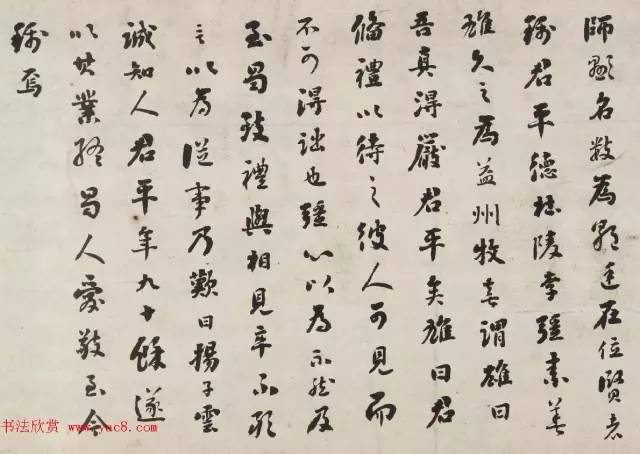 師顯名數為朝廷在位賢者
稱君平德杜陵李彊素善
雄久之為益州牧喜謂雄曰
吾真得嚴君平矣雄曰君
備禮以待之彼人可見而
不可得詘也彊心以為不然及
至蜀致禮與相見卒不敢
言以為從事乃歎曰揚子雲
誠知人君平年九十餘遂
以其業終蜀人愛敬至今
稱焉
书法欣赏 www.yac8.com